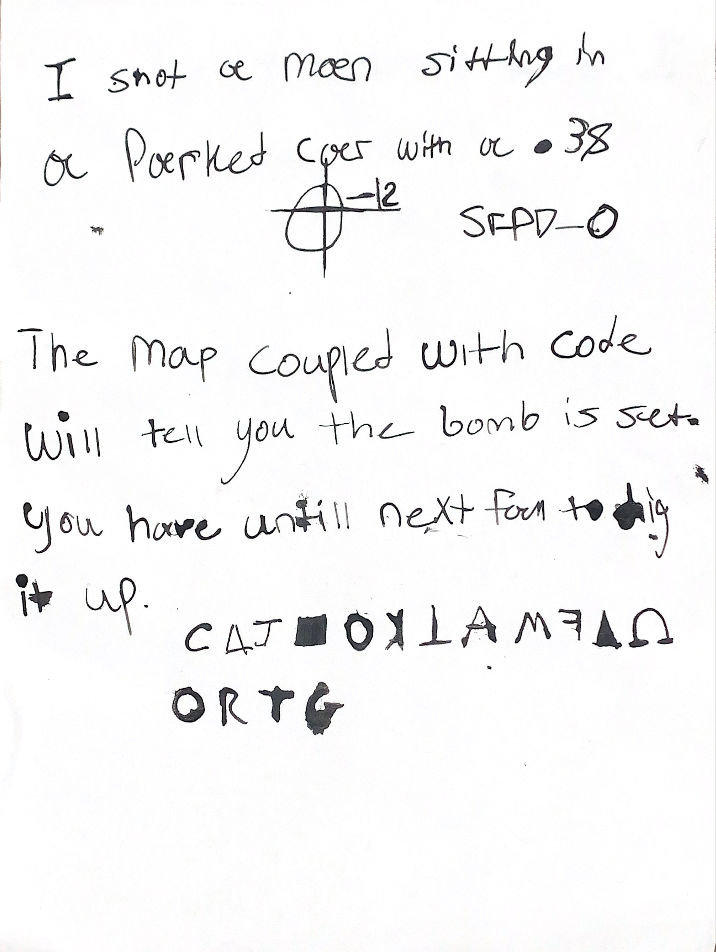 I shot a man sitting in
a Parked car with a .38
–12 SFPD–0
The Map coupled with code
will tell you the bomb is set.
you have untill next fall to dig
it up.
C∆J■OꓘꓕAMꟻ▲Ω
ORTG